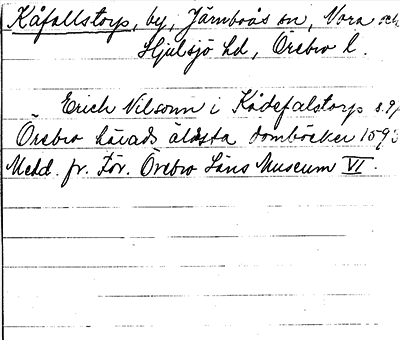 Kåfallstorp, by, Järnboås sn, Nora och
Hjulsjö hd, Örebro l.
Erich Nilsonn i Kådefalstorp s. 9
Örebro härads äldsta domböcker 1593
Medd. fr. För. Örebro Läns Museum VI.